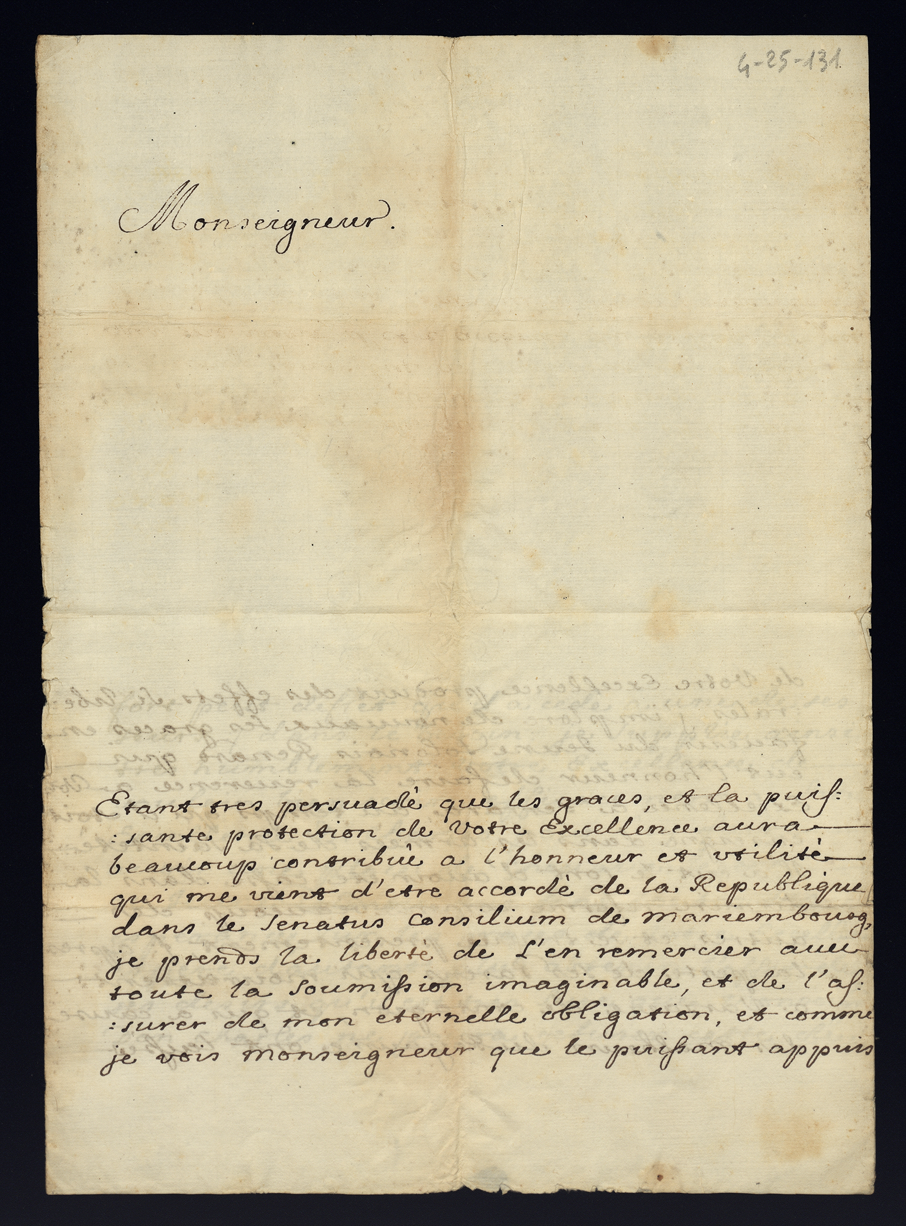 4-25-131
Monseigneur.
Etant tres persuadé que les graces, et la puis:
:sante protection de Votre Excellence aura
beaucoup contribuë a l'honneur et vtilité
qui me vient d'etre accordé de la Republique
dans le Senatus Consilium de Mariembourg,
je prends la liberté de L'en remercier avec
toute la Soumission imaginable, et de l'as:
:surer de mon eternelle obligation, et comme
je vois Monseigneur que le puissant appuis